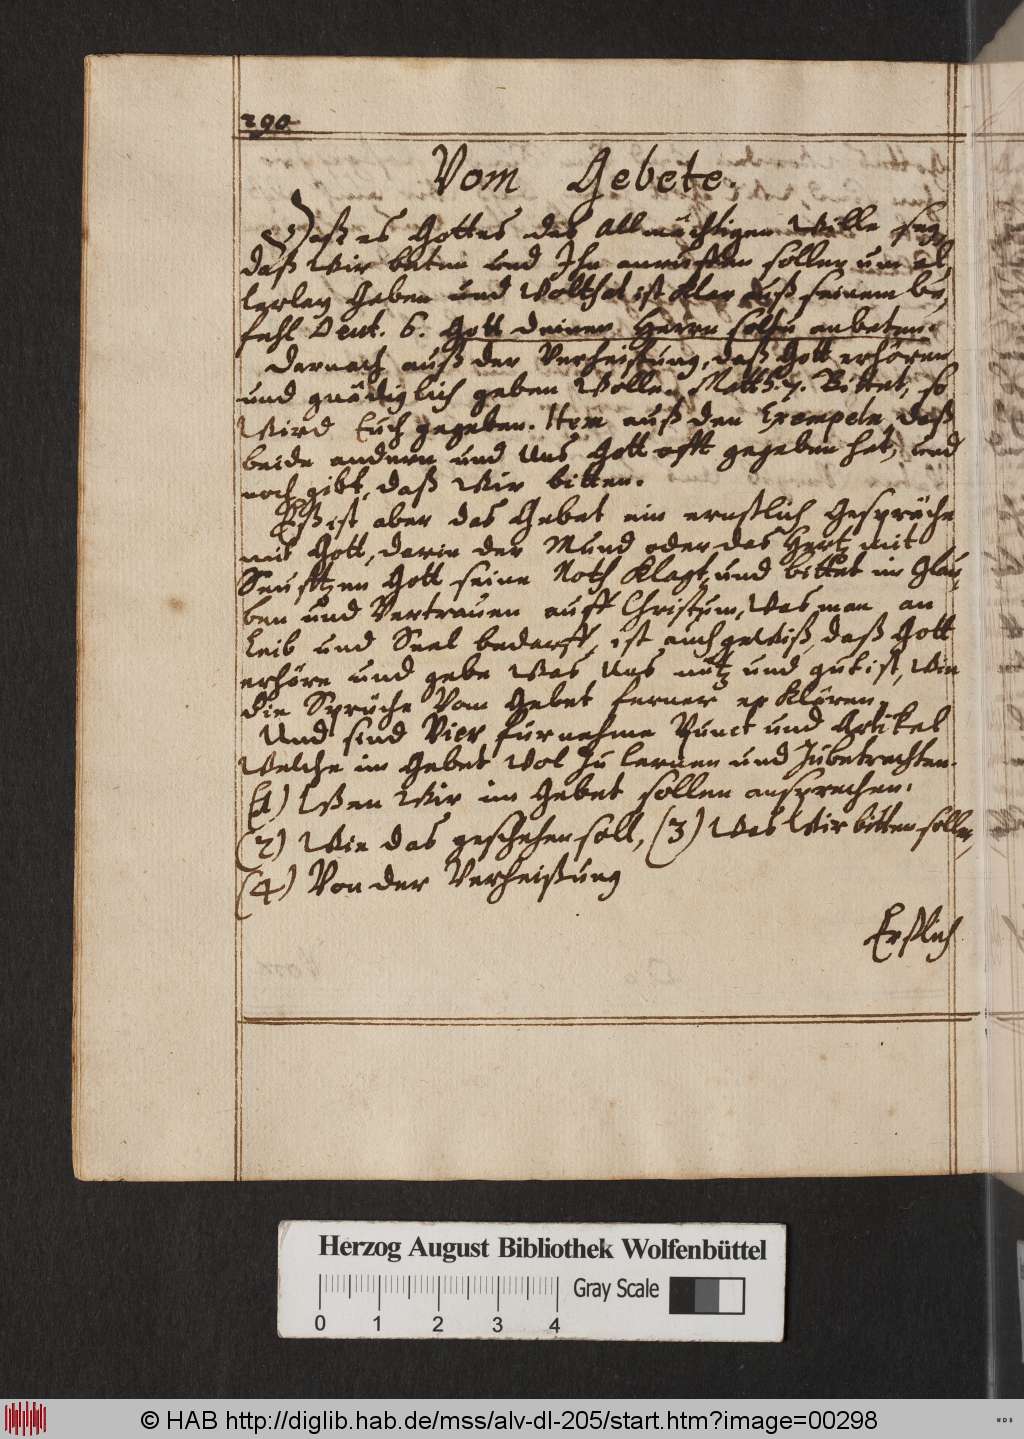 290
Vom Gebete.
Daß es Gottes des Allmächtigen Wille sey,
daß Wir beten und Ihn anruffen sollen um al
lerley Gaben und Wolthat ist Klar auß seinem be,
fehl Deut. 6. Gott deinen Herrn soltu anbeten.
Darnach auß der Verheissung, daß Gott erhören
und gnädiglich geben Wolle. Matth. 7. Bittet, so
Wird Euch gegeben. Item auß den Exempeln, daß
beide andern und Uns Gott offt gegeben hat, und
noch gibt, daß Wir bitten.
Eß ist aber das Gebet ein ernstlich Gespräche
mit Gott, darin der Mund oder das Hertz mit
Seufftzen Gott seine Noth Klagt, und bittet im Glau,
ben und Vertrauen auff Christum, Was man an
Leib und Seel bedarff, ist auch gewiß, daß Gott
erhöre und gebe Was Uns nütz und gut ist, Wie
die Sprüche Vom Gebet ferner erKlären.
Und sind Vier fürnehme Punct und Artikel
Welche im Gebet Wol zu lernen und zubetrachten.
(1) Wen Wir im Gebet sollen ansprechen.
(2) Wie das geschehen soll, (3) Was Wir bitten sollen,
(4) Von der Verheißung
Erstlich
Herzog August Bibliothek Wolfenbüttel
Gray Scale
0 1 2 3 4
© HAB http://diglib.hab.de/mss/alv-dl-205/start.htm?image=00298